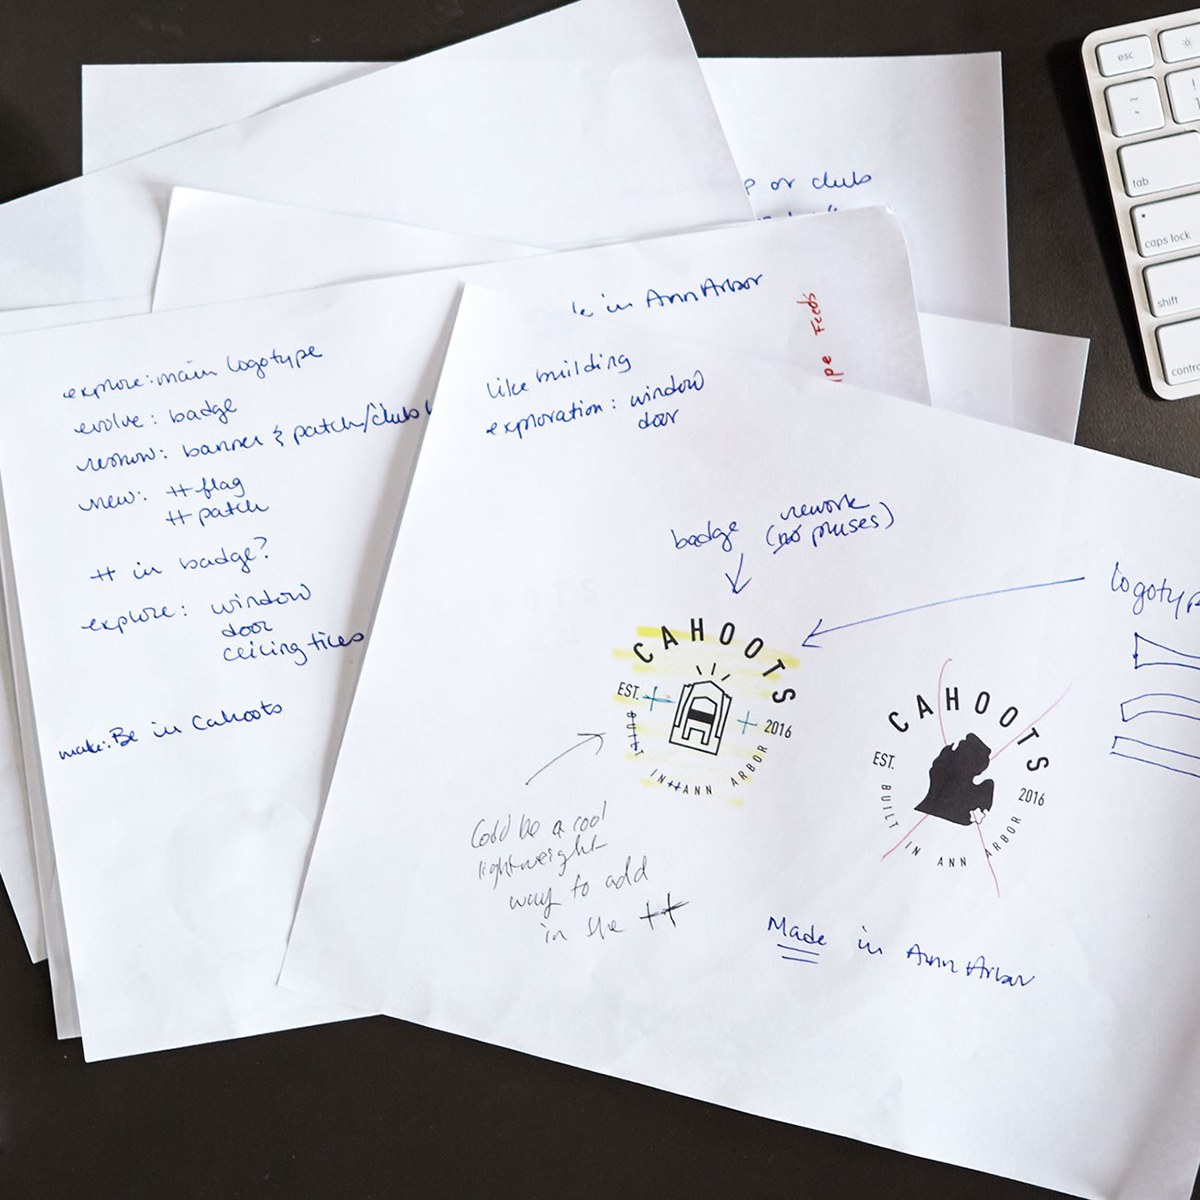 or club
explore: main logotype
evolve: badge
renow: banner & patch/club
new: ++ flag
++ patch
++ in badge?
explore: window
door
ceiling tiles
make: Be in Cahoots
in Ann Arbor
Feeds
like building
exploration: window
door
badge rework
(no pluses)
logotyp
CAHOOTS
EST. 2016
BUILT IN ++ ANN ARBOR
CAHOOTS
EST. 2016
BUILT IN ANN ARBOR
Could be a cool
lightweight
way to add
in the ++
Made in Ann Arbor
esc
~
!
tab
caps lock
shift
contro